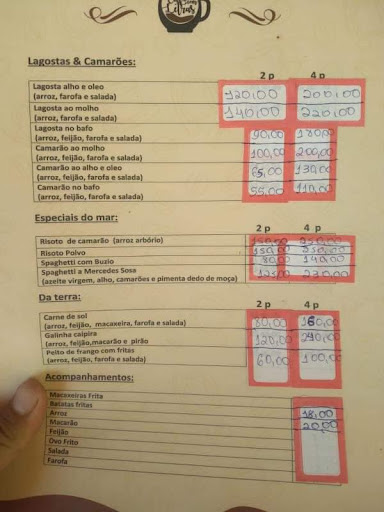 Lagostas & Camarões:
2 p 4 p
Lagosta alho e oleo 120,00 200,00
(arroz, farofa e salada)
Lagosta ao molho 140,00 220,00
(arroz, farofa e salada)
Lagosta no bafo 90,00 180,00
(arroz, feijão, farofa e salada)
Camarão ao molho 100,00 200,00
(arroz, feijão, farofa e salada)
Camarão ao alho e oleo 65,00 130,00
(arroz, feijão, farofa e salada)
Camarão no bafo 55,00 110,00
(arroz, feijão, farofa e salada)
Especiais do mar:
2 p 4 p
Risoto de camarão (arroz arbório) 150,00 250,00
Risoto Polvo 150,00 250,00
Spaghetti com Buzio 80,00 140,00
Spaghetti a Mercedes Sosa 125,00 230,00
(azeite virgem, alho, camarões e pimenta dedo de moça)
Da terra:
2 p 4 p
Carne de sol 80,00 160,00
(arroz, feijão, macaxeira, farofa e salada)
Galinha caipira 120,00 240,00
(arroz, feijão,macarão e pirão
Peito de frango com fritas 60,00 100,00
(arroz, feijão, farofa e salada)
Acompanhamentos:
Macaxeiras Frita
Batatas fritas
Arroz 18,00
Macarão 20,00
Feijão
Ovo Frito
Salada
Farofa